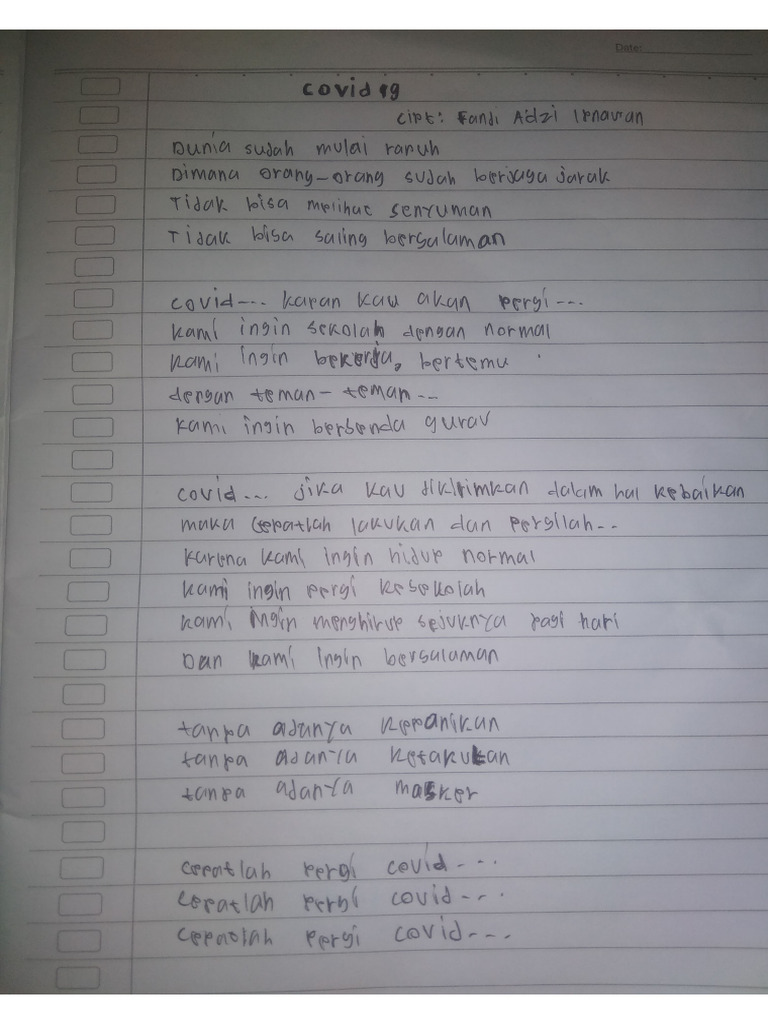 Date:
Covid 19
Cipt: Fandi Adzi
Dunia sudah mulai rapuh
Dimana orang-orang sudah berjaga jarak
Tidak bisa melihat senyuman
Tidak bisa saling bersalaman
covid... kapan kau akan pergi...
kami ingin sekolah dengan normal
kami ingin bekerja, bertemu
dengan teman-teman...
kami ingin bersenda gurau
covid... jika kau dikirimkan dalam hal kebaikan
maka cepatlah lakukan dan pergilah..
karena kami ingin hidup normal
kami ingin pergi kesekolah
kami ingin menghirup sejuknya pagi hari
Dan kami ingin bersalaman
tanpa adanya kepanikan
tanpa adanya ketakutan
tanpa adanya masker
cepatlah pergi covid....
cepatlah pergi covid....
cepatlah pergi covid....